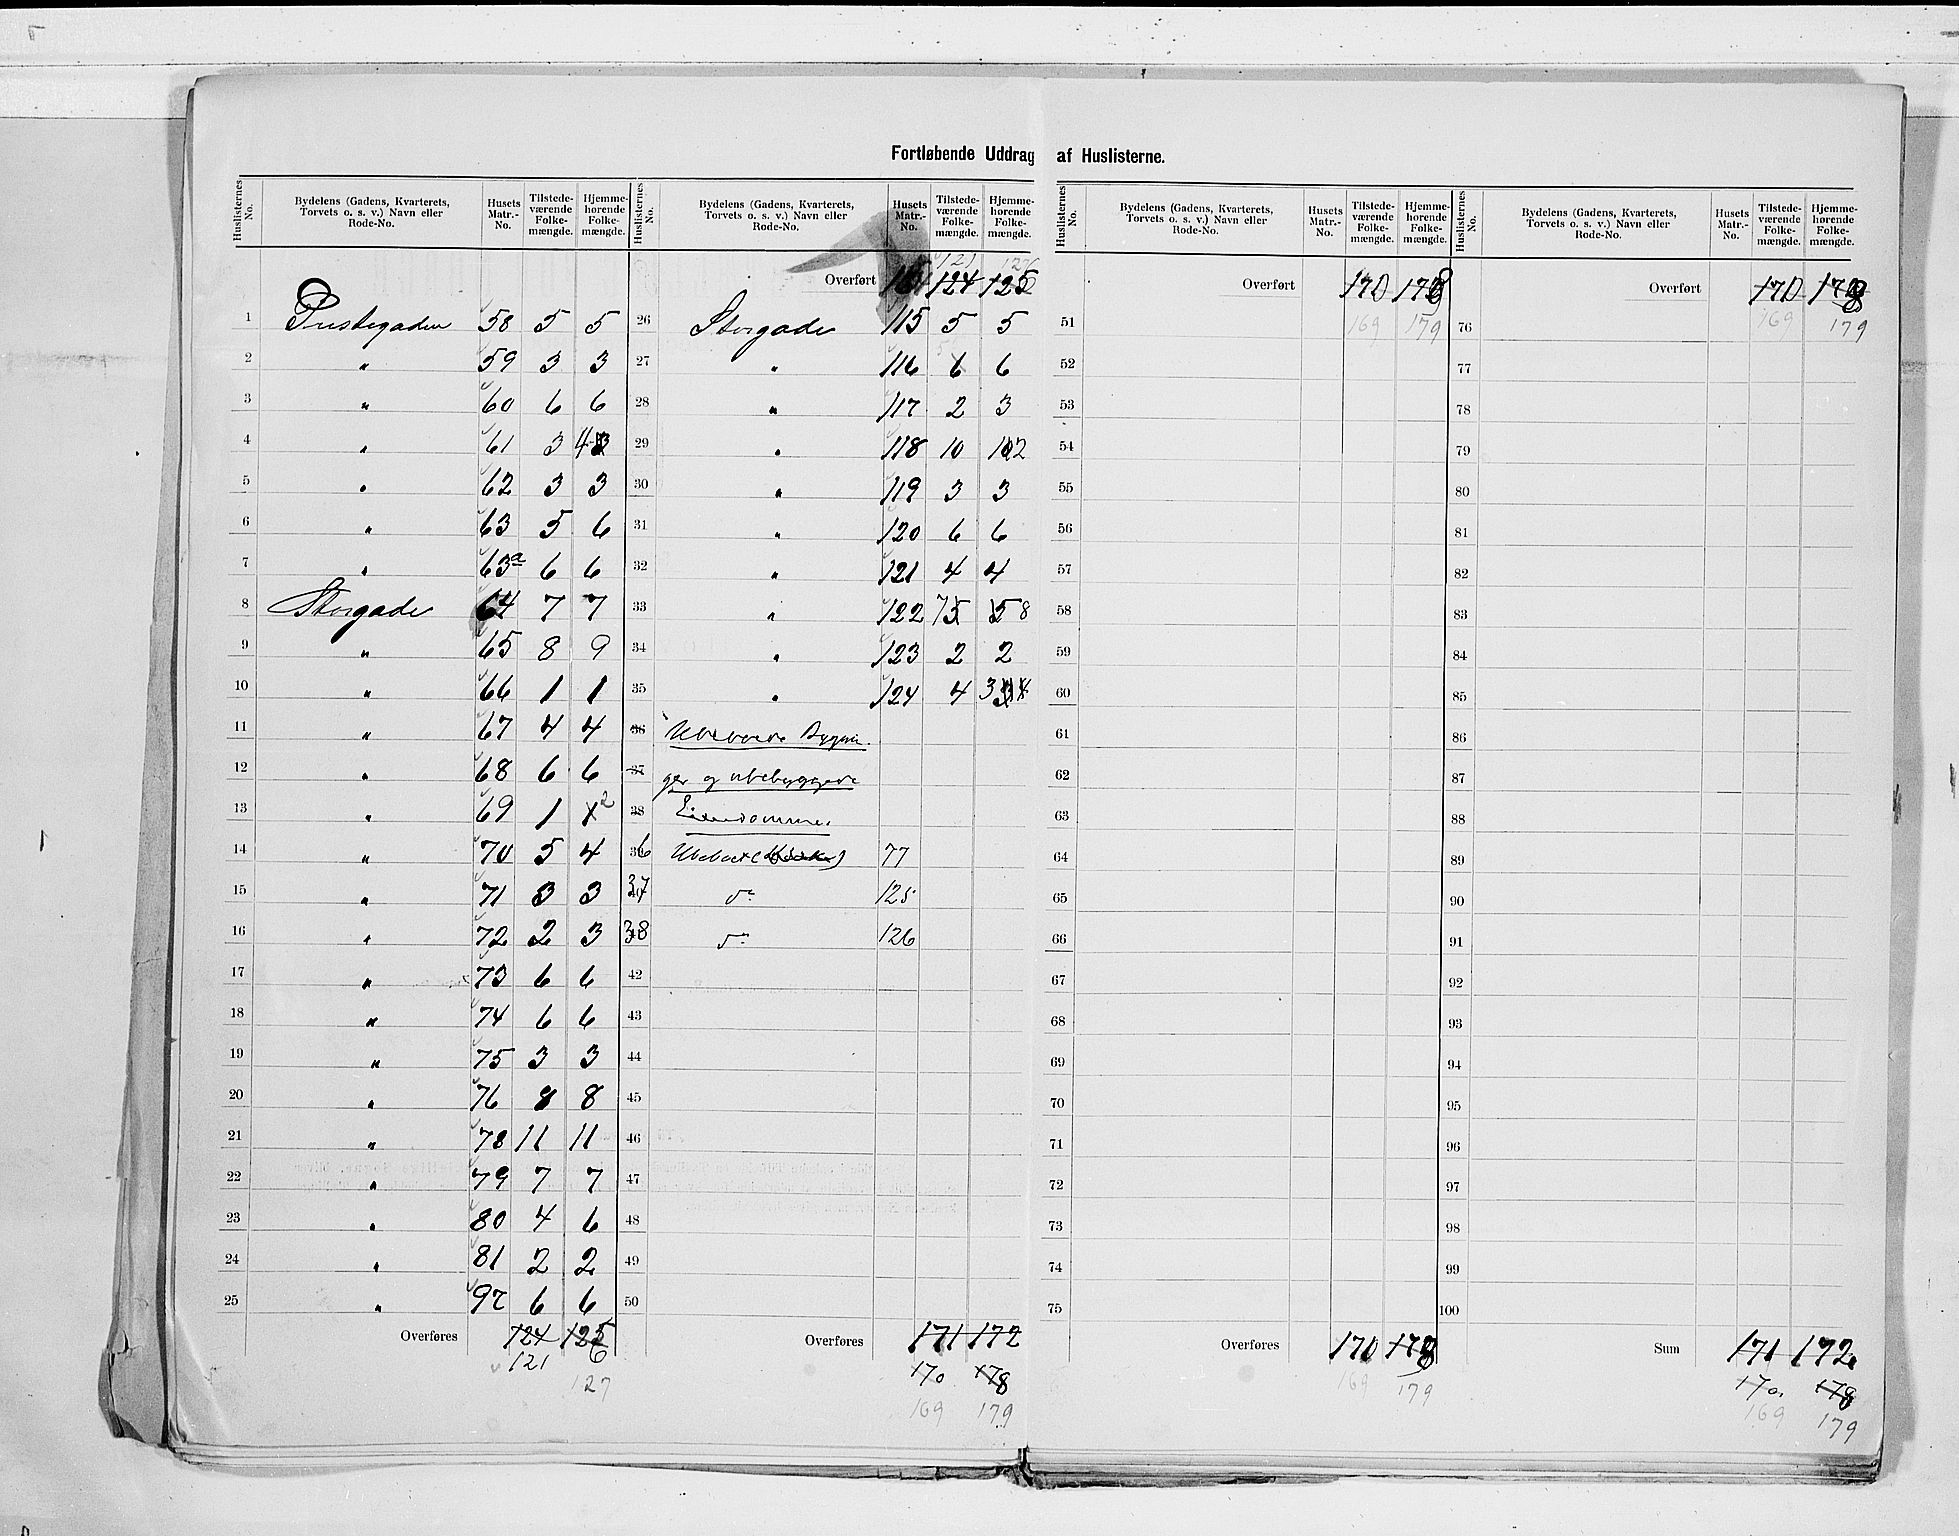 Fortløbende Uddrag af Huslisterne.
Huslisternes No. | Bydelens (Gadens, Kvarterets, Torvets o. s. v.) Navn eller Rode-No. | Husets Matr.-No. | Tilstedeværende Folkemængde. | Hjemmehørende Folkemængde.
1 Præstegaden 58 5 5
2 " 59 3 3
3 " 60 6 6
4 " 61 3 4
5 " 62 3 3
6 " 63 5 6
7 " 63a 6 6
8 Storgade 64 7 7
9 " 65 8 9
10 " 66 1 1
11 " 67 4 4
12 " 68 6 6
13 " 69 1 1 2
14 " 70 5 4
15 " 71 3 3
16 " 72 2 3
17 " 73 6 6
18 " 74 6 6
19 " 75 3 3
20 " 76 8 8
21 " 78 11 11
22 " 79 7 7
23 " 80 4 6
24 " 81 2 2
25 " 97 6 6
Overføres 124 125
121 6
127
Huslisternes No. | Bydelens (Gadens, Kvarterets, Torvets o. s. v.) Navn eller Rode-No. | Husets Matr.-No. | Tilstedeværende Folkemængde. | Hjemmehørende Folkemængde.
121
Overført 124 125
26 Storgade 115 5 5
27 " 116 6 6
28 " 117 2 3
29 " 118 10 10 12
30 " 119 3 3
31 " 120 6 6
32 " 121 4 4
33 " 122 7 5 5 8
34 " 123 2 2
35 " 124 4 3
36 Ubeboede Bygnin
37 ger og ubebyggede
38 Eiendomme.
36 Ubeboet 77
37 do 125
38 do 126
42
43
44
45
46
47
48
49
50
Overføres 171 172
170 178
169 179
Huslisternes No. | Bydelens (Gadens, Kvarterets, Torvets o. s. v.) Navn eller Rode-No. | Husets Matr.-No. | Tilstedeværende Folkemængde. | Hjemmehørende Folkemængde.
Overført 170 178
51 169 179
52
53
54
55
56
57
58
59
60
61
62
63
64
65
66
67
68
69
70
71
72
73
74
75
Overføres 170 178
169 179
Huslisternes No. | Bydelens (Gadens, Kvarterets, Torvets o. s. v.) Navn eller Rode-No. | Husets Matr.-No. | Tilstedeværende Folkemængde. | Hjemmehørende Folkemængde.
Overført 170 178
76 169 179
77
78
79
80
81
82
83
84
85
86
87
88
89
90
91
92
93
94
95
96
97
98
99
100
Sum 171 172
170 178
169 179